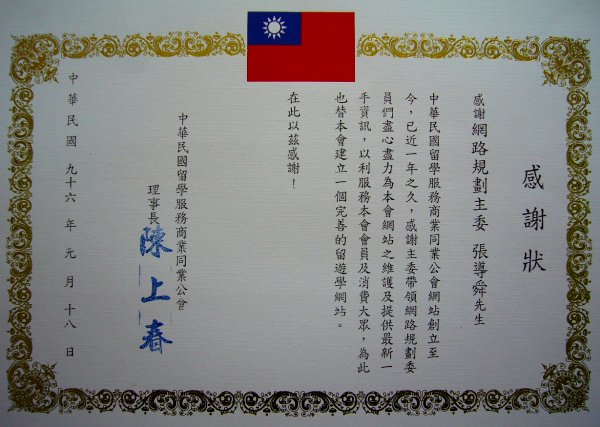 感謝狀
感謝 網路規劃主委 張導舜先生
中華民國留學服務商業同業公會網站創立至
今，已近一年之久，感謝主委帶領網路規劃委
員們盡心盡力為本會網站之維護及提供最新一
手資訊，以利服務本會會員及消費大眾，為此
也替本會建立一個完善的留遊學網站。
在此以茲感謝！
中華民國留學服務商業同業公會
理事長 陳上春
中華民國 九十六 年 元 月 十八 日